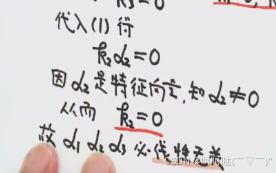 代入(1)得
k₂α₂=0
因α₂是特征向量,知α₂≠0
从而 k₂=0
故α₁ α₂ α₃必线性无关